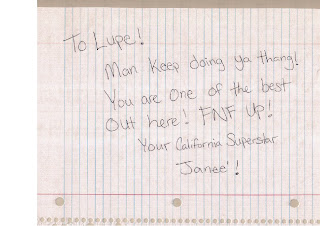 To Lupe!
Man Keep doing ya thang!
You are one of the best
Out here! FNF UP!
Your California Superstar
Janee'!